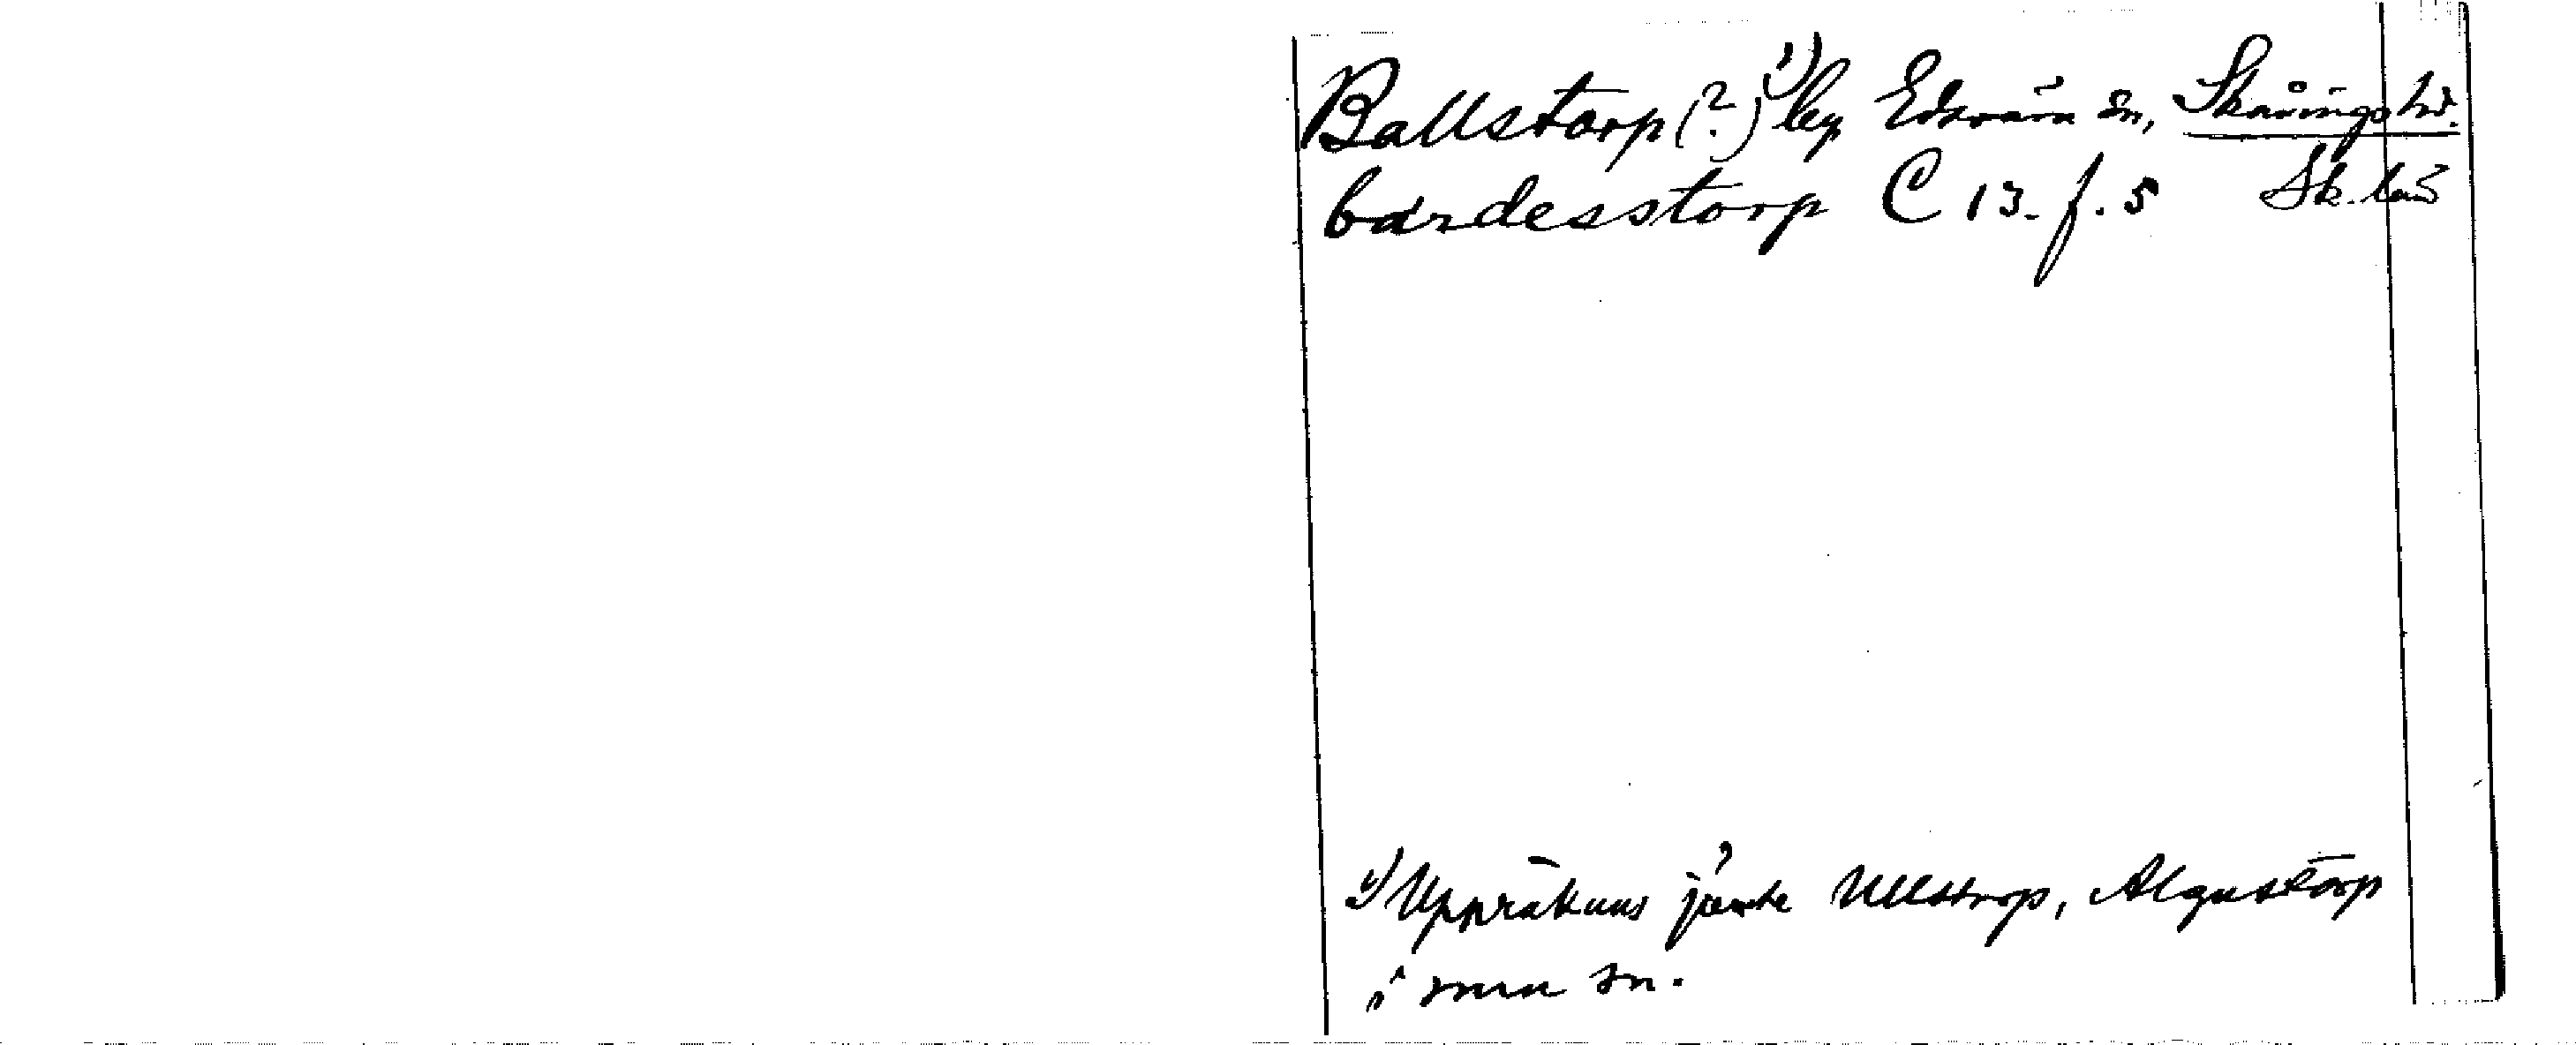 Ballstorp (?) 1) by Edsvära sn, Skånings hd.
bardesstorp C 13. f. 5 Sk. län
1) Uppräknas jämte Ullstorp, Algustorp
i sma sn.